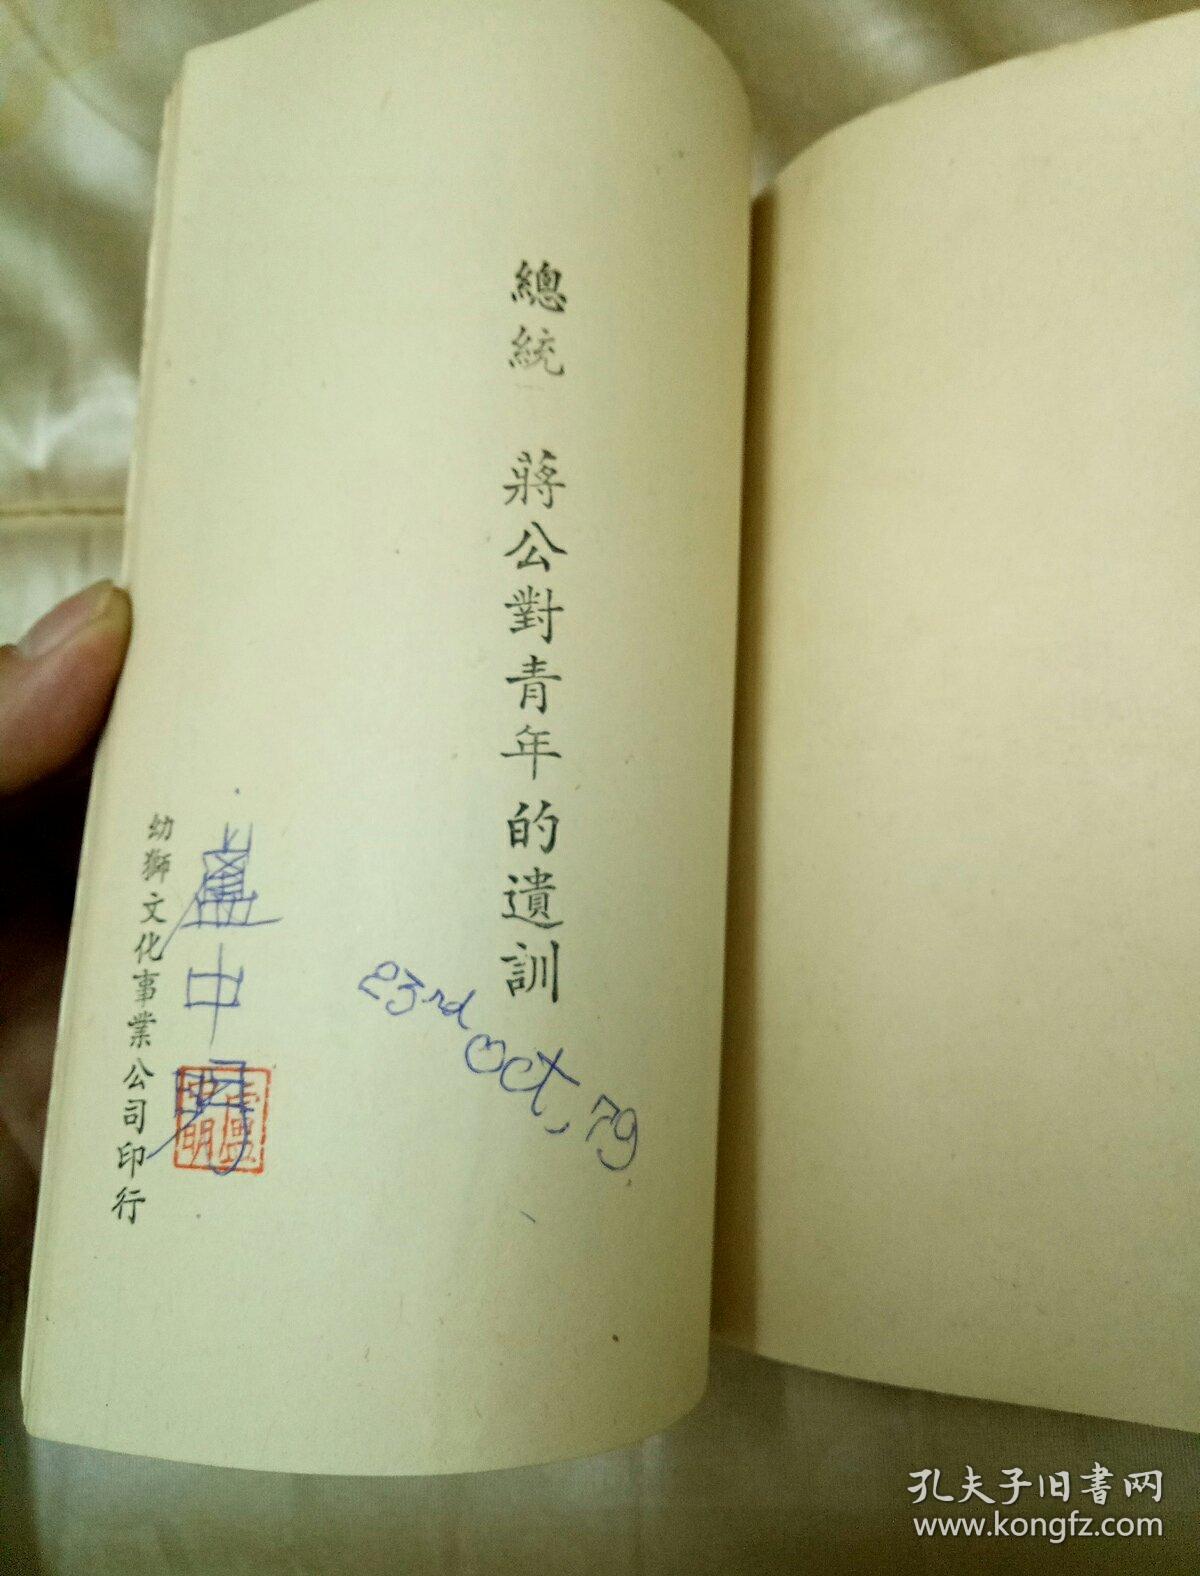 總統 蔣公對青年的遺訓
23rd Oct, 79
盧中明
盧中明
幼獅文化事業公司印行
孔夫子旧书网
www.kongfz.com